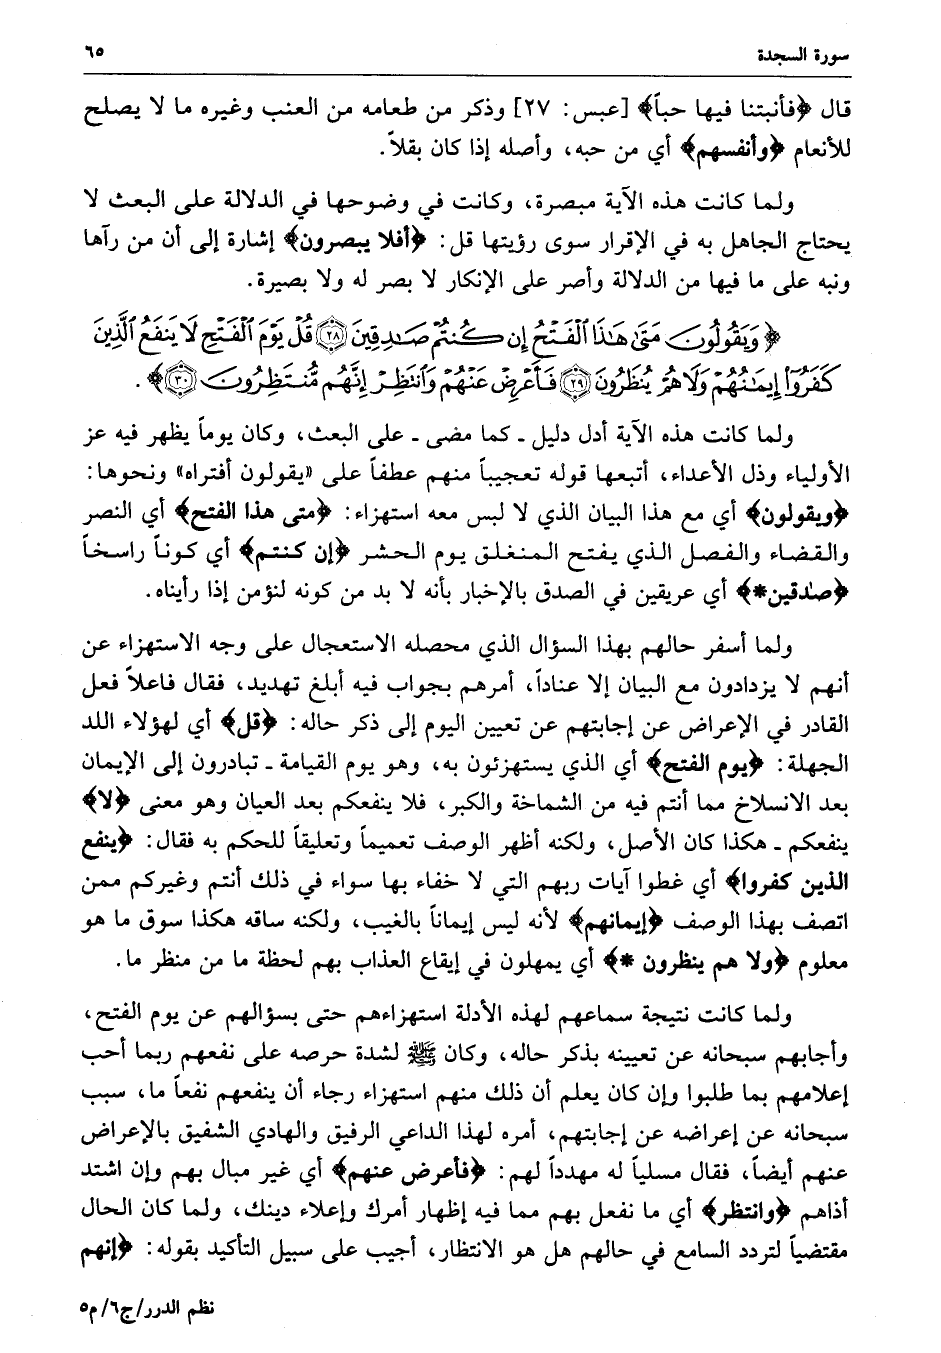 سورة السجدة
٦٥
قال ﴿فأنبتنا فيها حباً﴾ [عبس: ٢٧] وذكر من طعامه من العنب وغيره ما لا يصلح
للأنعام ﴿وأنفسهم﴾ أي من حبه، وأصله إذا كان بقلاً.
ولما كانت هذه الآية مبصرة، وكانت في وضوحها في الدلالة على البعث لا
يحتاج الجاهل به في الإقرار سوى رؤيتها قل: ﴿أفلا يبصرون﴾ إشارة إلى أن من رآها
ونبه على ما فيها من الدلالة وأصر على الإنكار لا بصر له ولا بصيرة.
﴿وَيَقُولُونَ مَتَىٰ هَٰذَا الْفَتْحُ إِن كُنتُمْ صَادِقِينَ ٢٨ قُلْ يَوْمَ الْفَتْحِ لَا يَنفَعُ الَّذِينَ
كَفَرُوا إِيمَانُهُمْ وَلَا هُمْ يُنظَرُونَ ٢٩ فَأَعْرِضْ عَنْهُمْ وَانتَظِرْ إِنَّهُم مُّنتَظِرُونَ ٣٠﴾.
ولما كانت هذه الآية أدل دليل ـ كما مضى ـ على البعث، وكان يوماً يظهر فيه عز
الأولياء وذل الأعداء، أتبعها قوله تعجيباً منهم عطفاً على «يقولون أفتراه» ونحوها:
﴿ويقولون﴾ أي مع هذا البيان الذي لا لبس معه استهزاء: ﴿متى هذا الفتح﴾ أي النصر
والقضاء والفصل الذي يفتح المنغلق يوم الحشر ﴿إن كنتم﴾ أي كوناً راسخاً
﴿صادقين*﴾ أي عريقين في الصدق بالإخبار بأنه لا بد من كونه لنؤمن إذا رأيناه.
ولما أسفر حالهم بهذا السؤال الذي محصله الاستعجال على وجه الاستهزاء عن
أنهم لا يزدادون مع البيان إلا عناداً، أمرهم بجواب فيه أبلغ تهديد، فقال فاعلاً فعل
القادر في الإعراض عن إجابتهم عن تعيين اليوم إلى ذكر حاله: ﴿قل﴾ أي لهؤلاء اللد
الجهلة: ﴿يوم الفتح﴾ أي الذي يستهزئون به، وهو يوم القيامة ـ تبادرون إلى الإيمان
بعد الانسلاخ مما أنتم فيه من الشماخة والكبر، فلا ينفعكم بعد العيان وهو معنى ﴿لا﴾
ينفعكم ـ هكذا كان الأصل، ولكنه أظهر الوصف تعميماً وتعليقاً للحكم به فقال: ﴿ينفع
الذين كفروا﴾ أي غطوا آيات ربهم التي لا خفاء بها سواء في ذلك أنتم وغيركم ممن
اتصف بهذا الوصف ﴿إيمانهم﴾ لأنه ليس إيماناً بالغيب، ولكنه ساقه هكذا سوق ما هو
معلوم ﴿ولا هم ينظرون *﴾ أي يمهلون في إيقاع العذاب بهم لحظة ما من منظر ما.
ولما كانت نتيجة سماعهم لهذه الأدلة استهزاءهم حتى بسؤالهم عن يوم الفتح،
وأجابهم سبحانه عن تعيينه بذكر حاله، وكان ﷺ لشدة حرصه على نفعهم ربما أحب
إعلامهم بما طلبوا وإن كان يعلم أن ذلك منهم استهزاء رجاء أن ينفعهم نفعاً ما، سبب
سبحانه عن إعراضه عن إجابتهم، أمره لهذا الداعي الرفيق والهادي الشفيق بالإعراض
عنهم أيضاً، فقال مسلياً له مهدداً لهم: ﴿فأعرض عنهم﴾ أي غير مبال بهم وإن اشتد
أذاهم ﴿وانتظر﴾ أي ما نفعل بهم مما فيه إظهار أمرك وإعلاء دينك، ولما كان الحال
مقتضياً لتردد السامع في حالهم هل هو الانتظار، أجيب على سبيل التأكيد بقوله: ﴿إنهم
نظم الدرر/ج٦/م٥